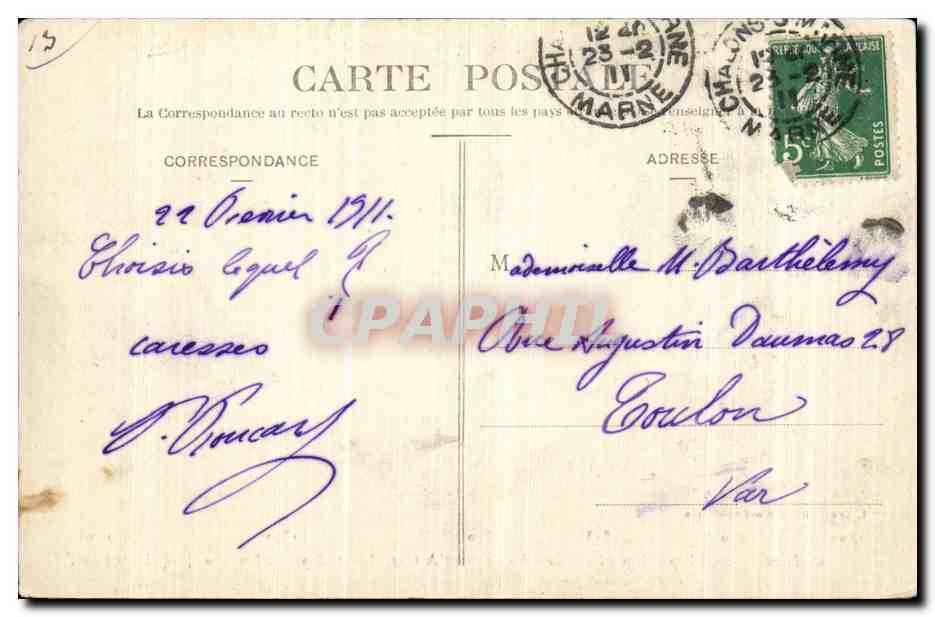 15
CARTE POSTALE
La Correspondance au recto n'est pas acceptée par tous les pays renseigner à
CORRESPONDANCE
22 Février 1911.
Choisis lequel
caresses
ADRESSE
Mademoiselle M. Barthélemy
Rue Augustin Daumas 28
Toulon
Var
CHALONS S MARNE
12
23 - 2
11
MARNE
CHALONS S MARNE
12
23 - 2
11
MARNE
REPUBLIQUE FRANÇAISE
5c
POSTES
CPAPHIL